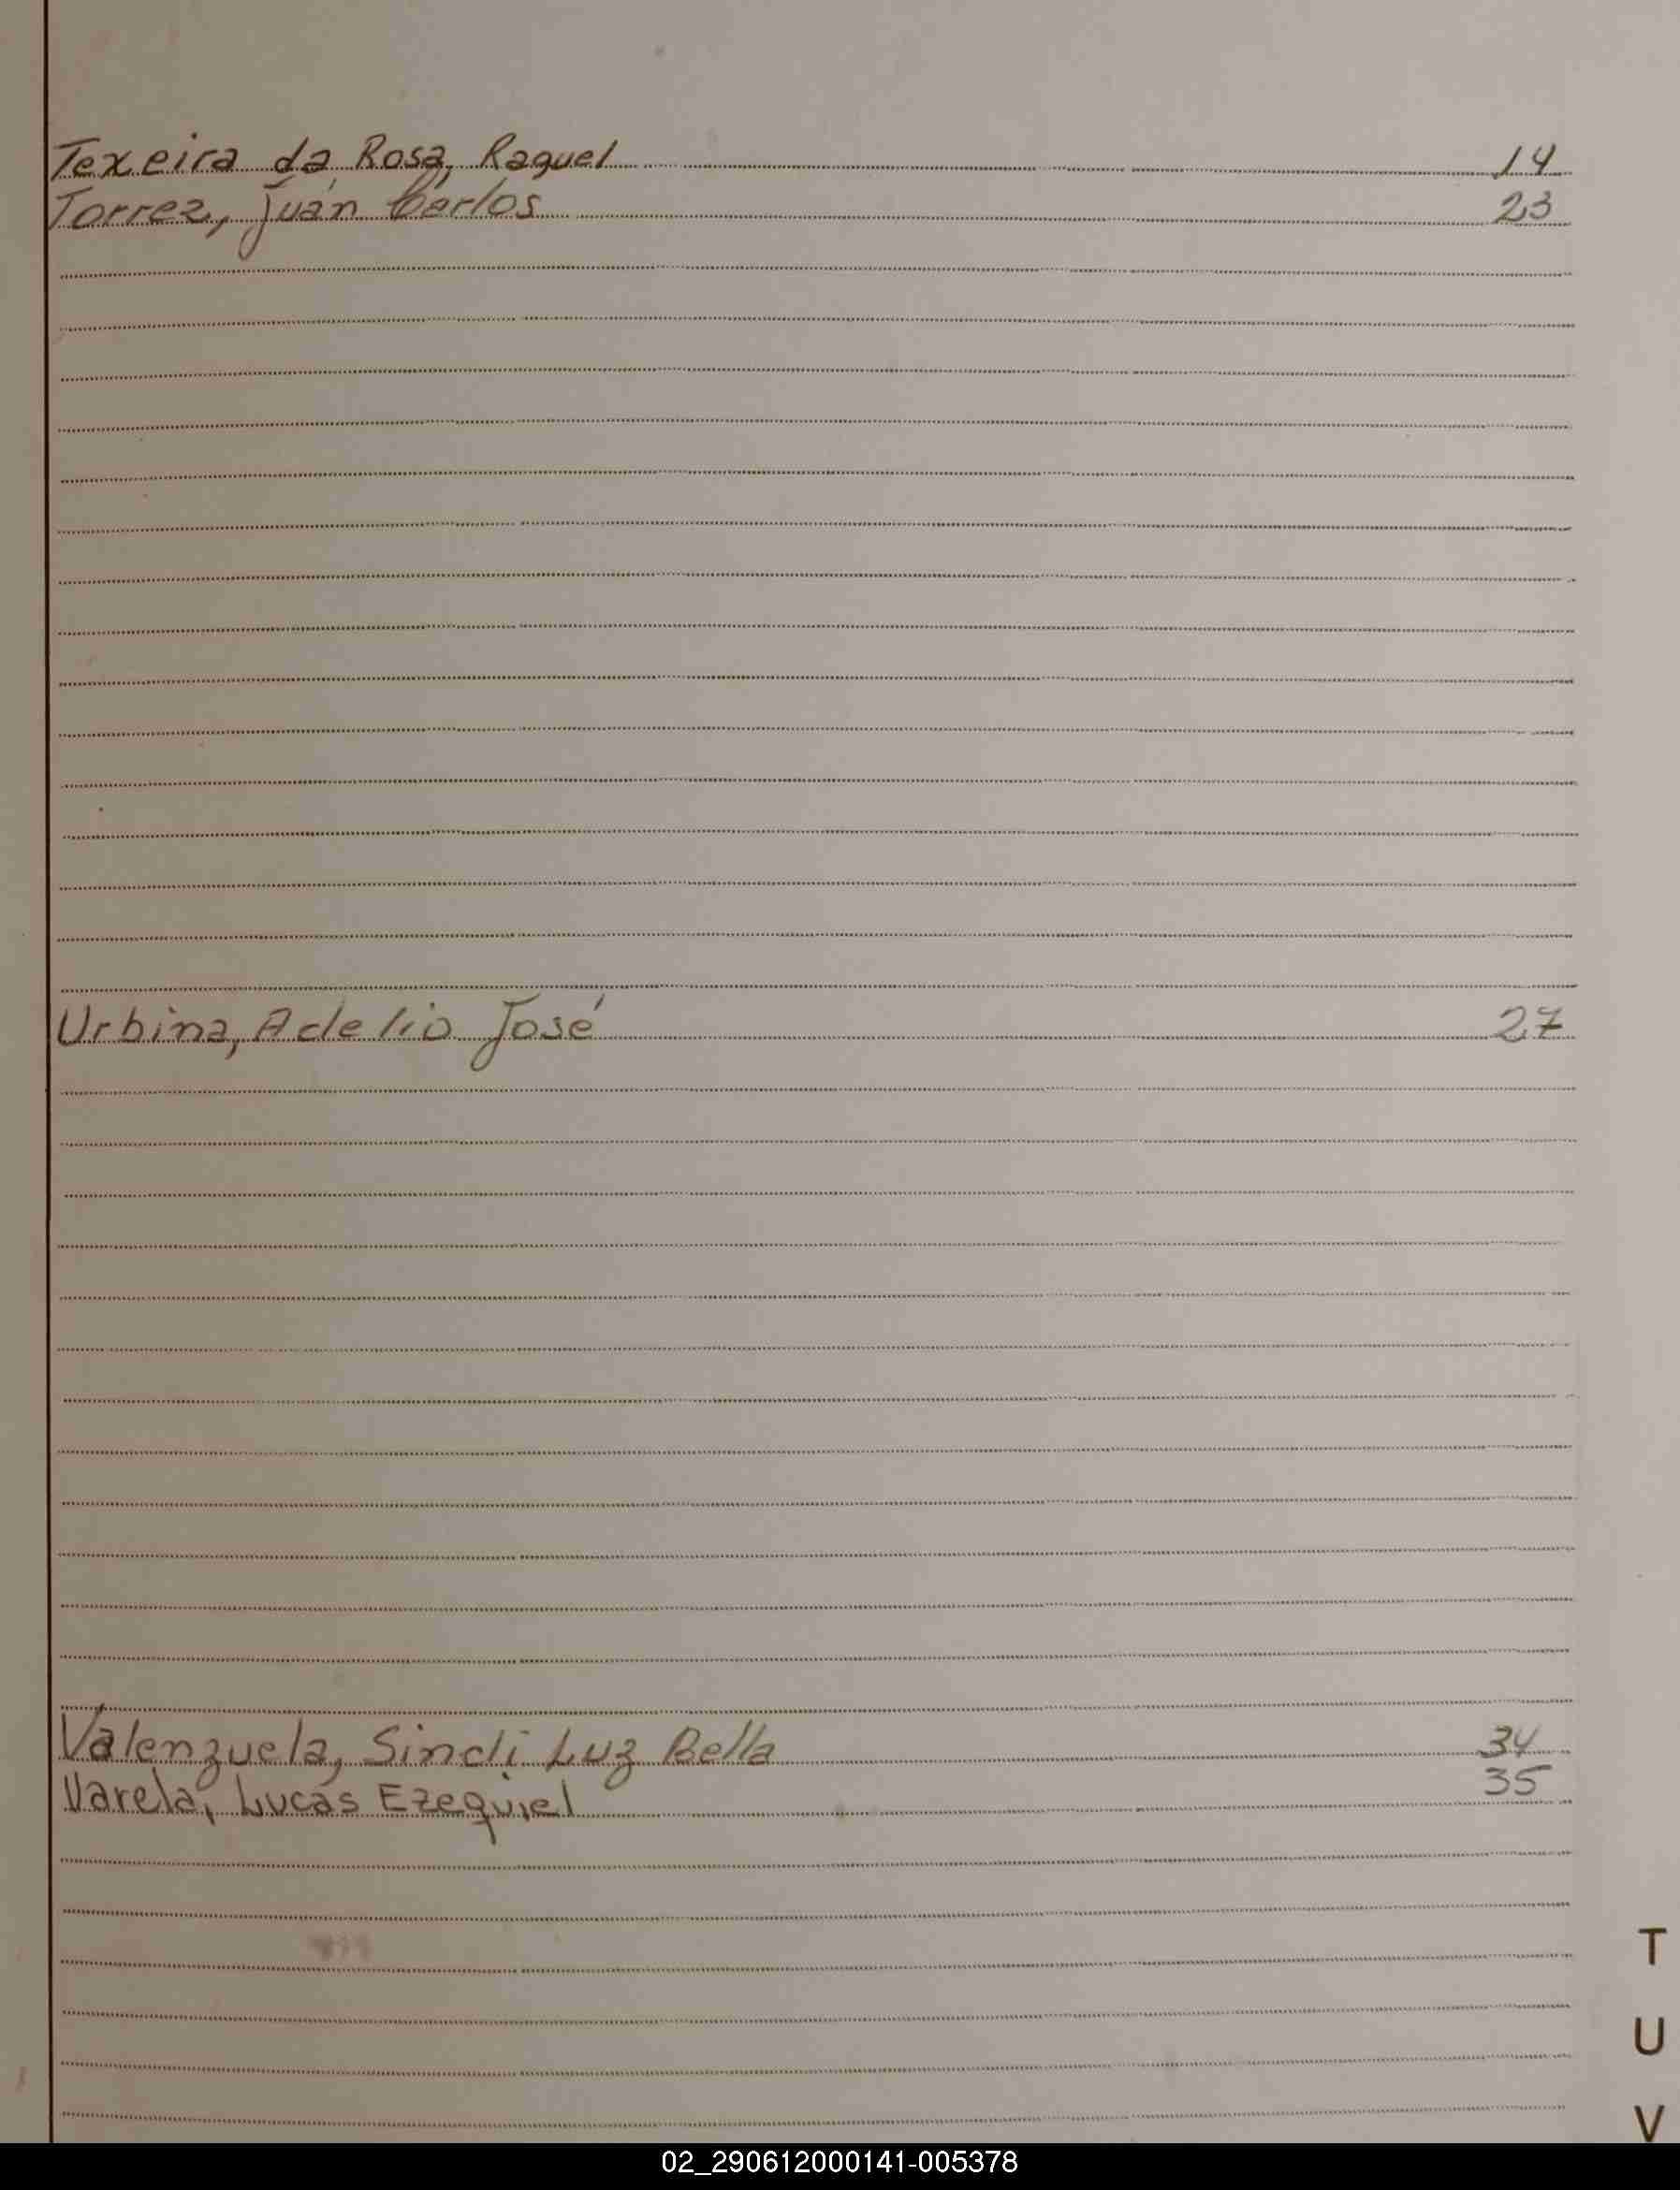 Texeira da Rosa, Raquel 14
Torrez, Juan Carlos 23
Urbina, Adelio José 27
Valenzuela, Sindi Luz Bella 34
Varela, Lucas Ezequiel 35
T
U
V
02_290612000141-005378